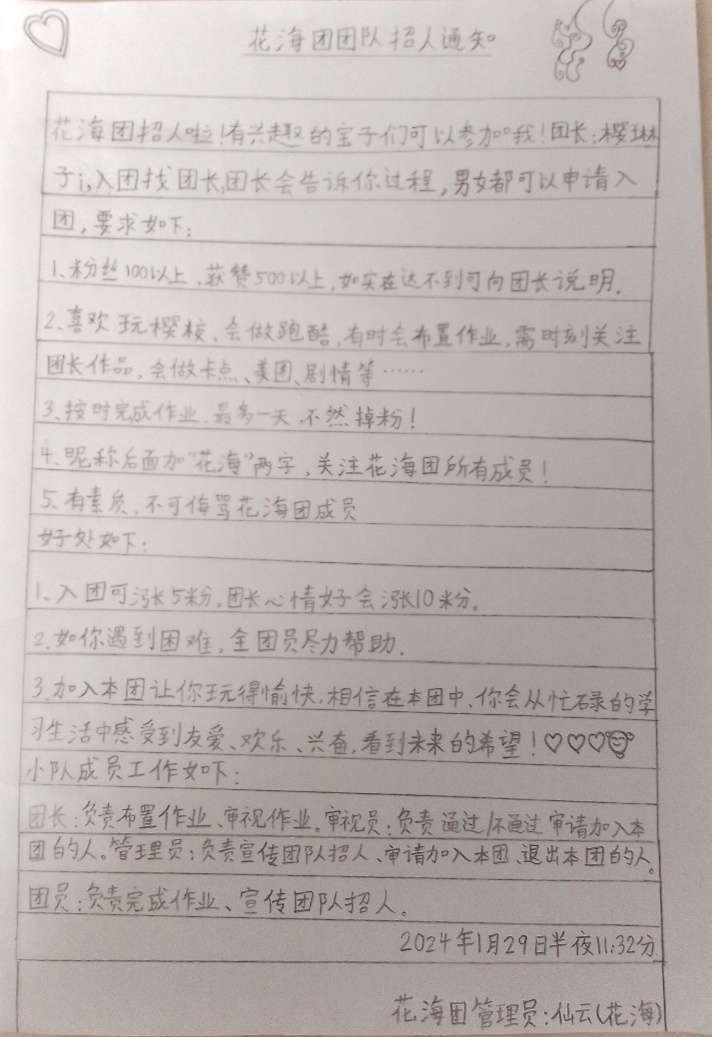 花海团团队招人通知
花海团招人啦!有兴趣的宝子们可以参加我!团长:樱琳
子i,入团找团长,团长会告诉你过程,男女都可以申请入
团,要求如下:
1、粉丝100以上、获赞500以上,如实在达不到可向团长说明.
2.喜欢玩樱校、会做跑酷,有时会布置作业,需时刻关注
团长作品,会做卡点、美图、剧情等……
3、按时完成作业.最多一天,不然掉粉!
4、昵称后面加“花海”两字,关注花海团所有成员!
5、有素质,不可侮骂花海团成员
好处如下:
1、入团可涨5粉,团长心情好会涨10粉.
2.如你遇到困难,全团员尽力帮助.
3.加入本团让你玩得愉快,相信在本团中,你会从忙碌的学
习生活中感受到友爱、欢乐、兴奋,看到未来的希望!♡♡♡
小队成员工作如下:
团长:负责布置作业、审视作业。审视员:负责通过/不通过审请加入本
团的人。管理员:负责宣传团队招人、审请加入本团、退出本团的人。
团员:负责完成作业、宣传团队招人。
2024年1月29日半夜11:32分
花海团管理员:仙云(花海)